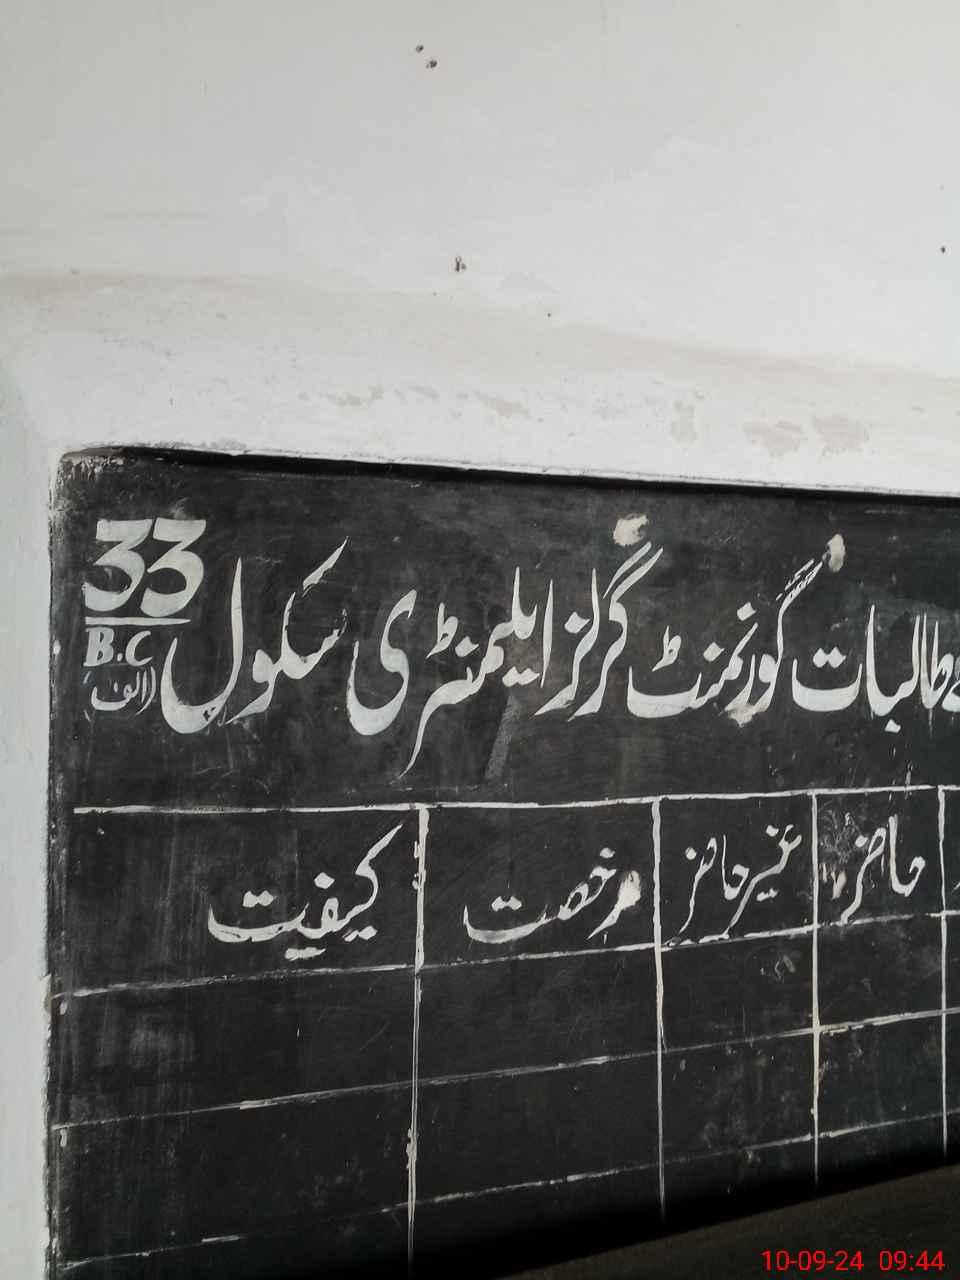 طالبات گورنمنٹ گرلز ایلیمنٹری سکول 33
B.C
(الف)
حاضر غیر حاضر رخصت کیفیت
10-09-24 09:44